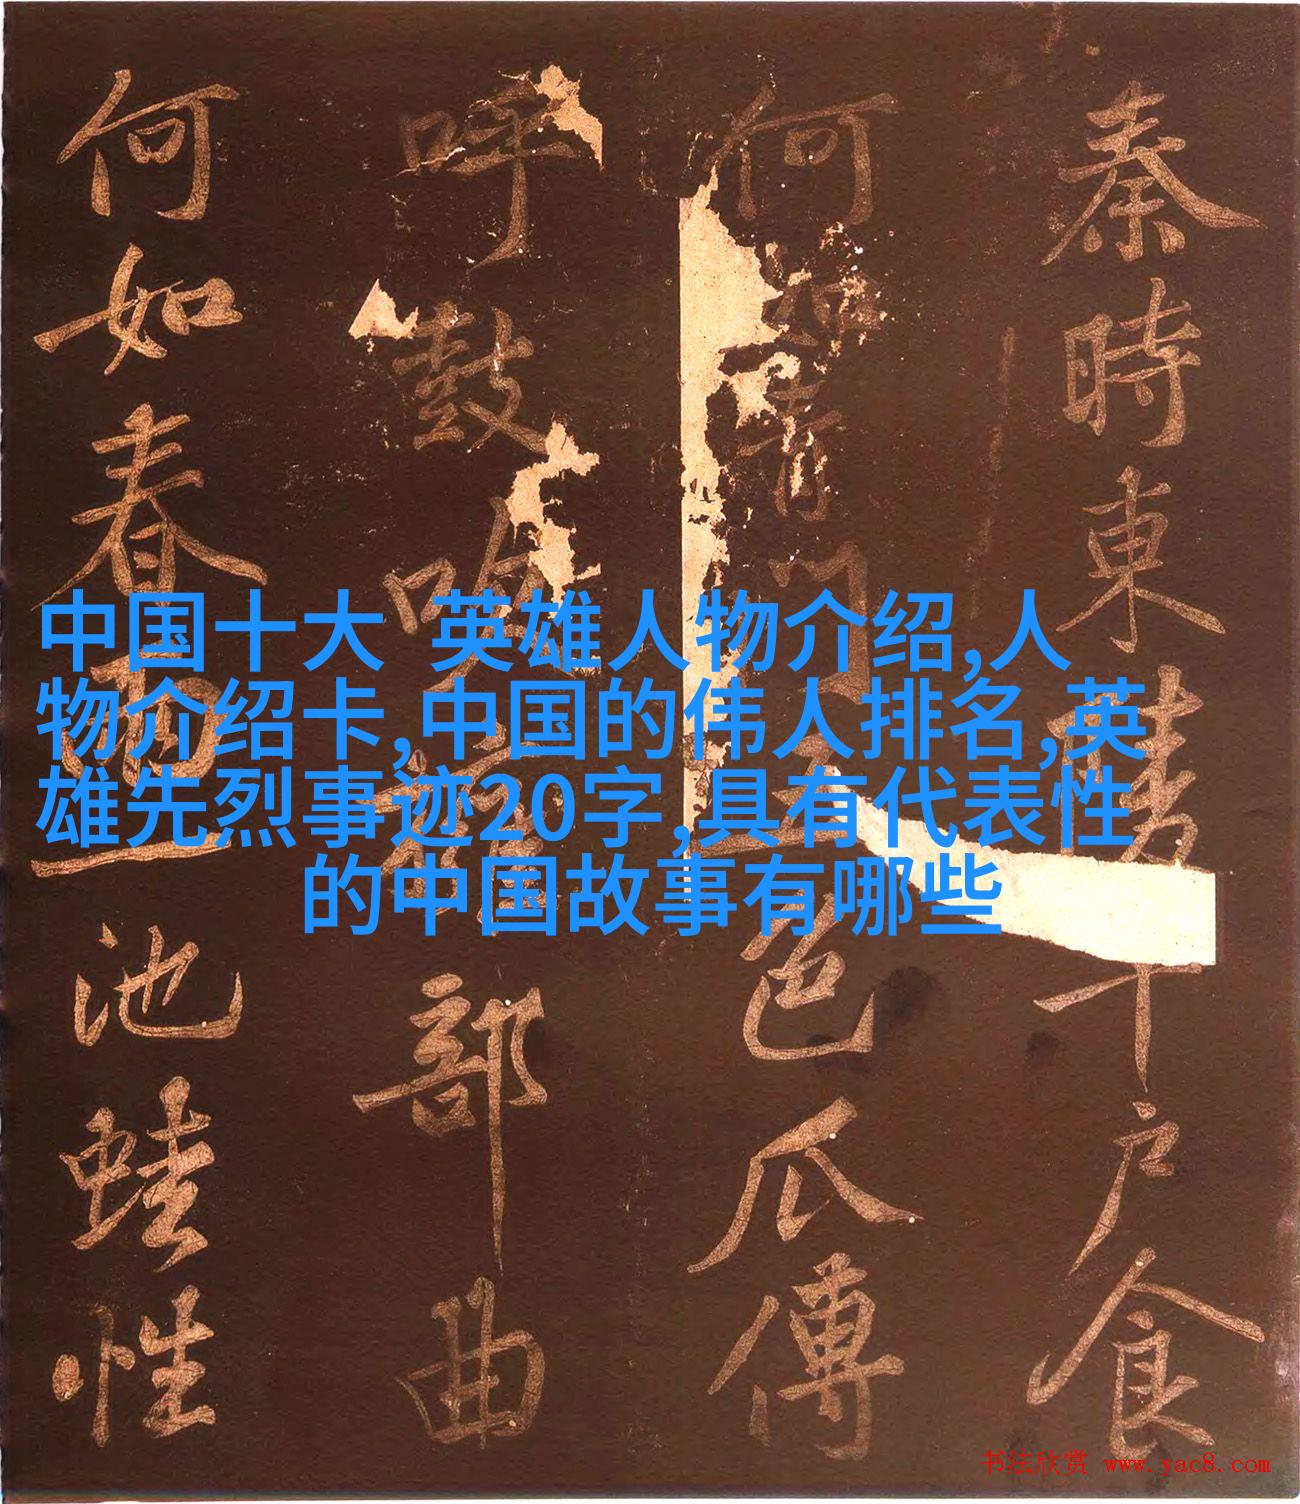 中国十大 英雄人物介绍,人
物介绍卡,中国的伟人排名,英
雄先烈事迹20字,具有代表性
的中国故事有哪些
秦時東陵千戶食
何如青門五色瓜傳
呼鼓吹擁部曲
何如春雨一池蛙性
书法欣赏 www.yac8.com